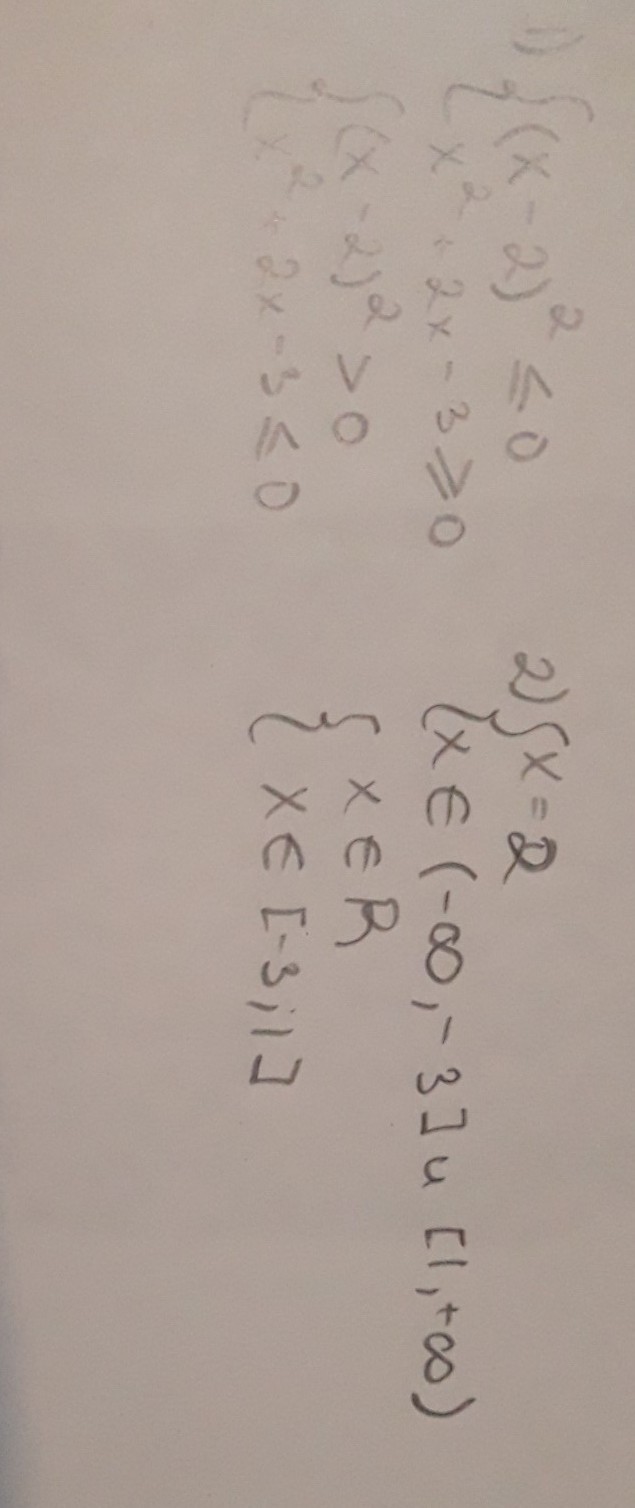 1) { (x - 2)² ≤ 0
{ x² + 2x - 3 ≥ 0
{ (x - 2)² > 0
{ x² + 2x - 3 ≤ 0
2) { x = 2
{ x ∈ (-∞, -3] ∪ [1, +∞)
{ x ∈ R
{ x ∈ [-3; 1]